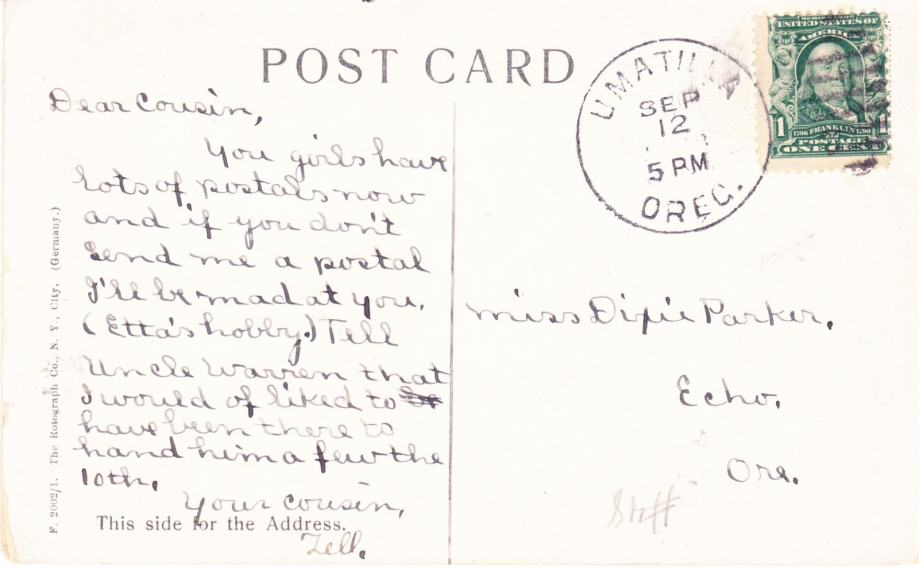 POST CARD
UMATILLA
SEP
12
5 PM
OREG.
SERIES 1902
UNITED STATES OF
AMERICA
1 1
1706 FRANKLIN 1790
POSTAGE
ONE CENT
Dear Cousin,
You girls have
lots of postals now
and if you don't
send me a postal
I'll be mad at you.
(Etta's hobby.) Tell
Uncle Warren that
I would of liked to be
have been there to
hand him a few the
10th.
Your cousin,
Zell.
This side for the Address.
F. 2002/1. The Rotograph Co., N. Y., City. (Germany.)
Miss Dixie Parker.
Echo.
Ore.